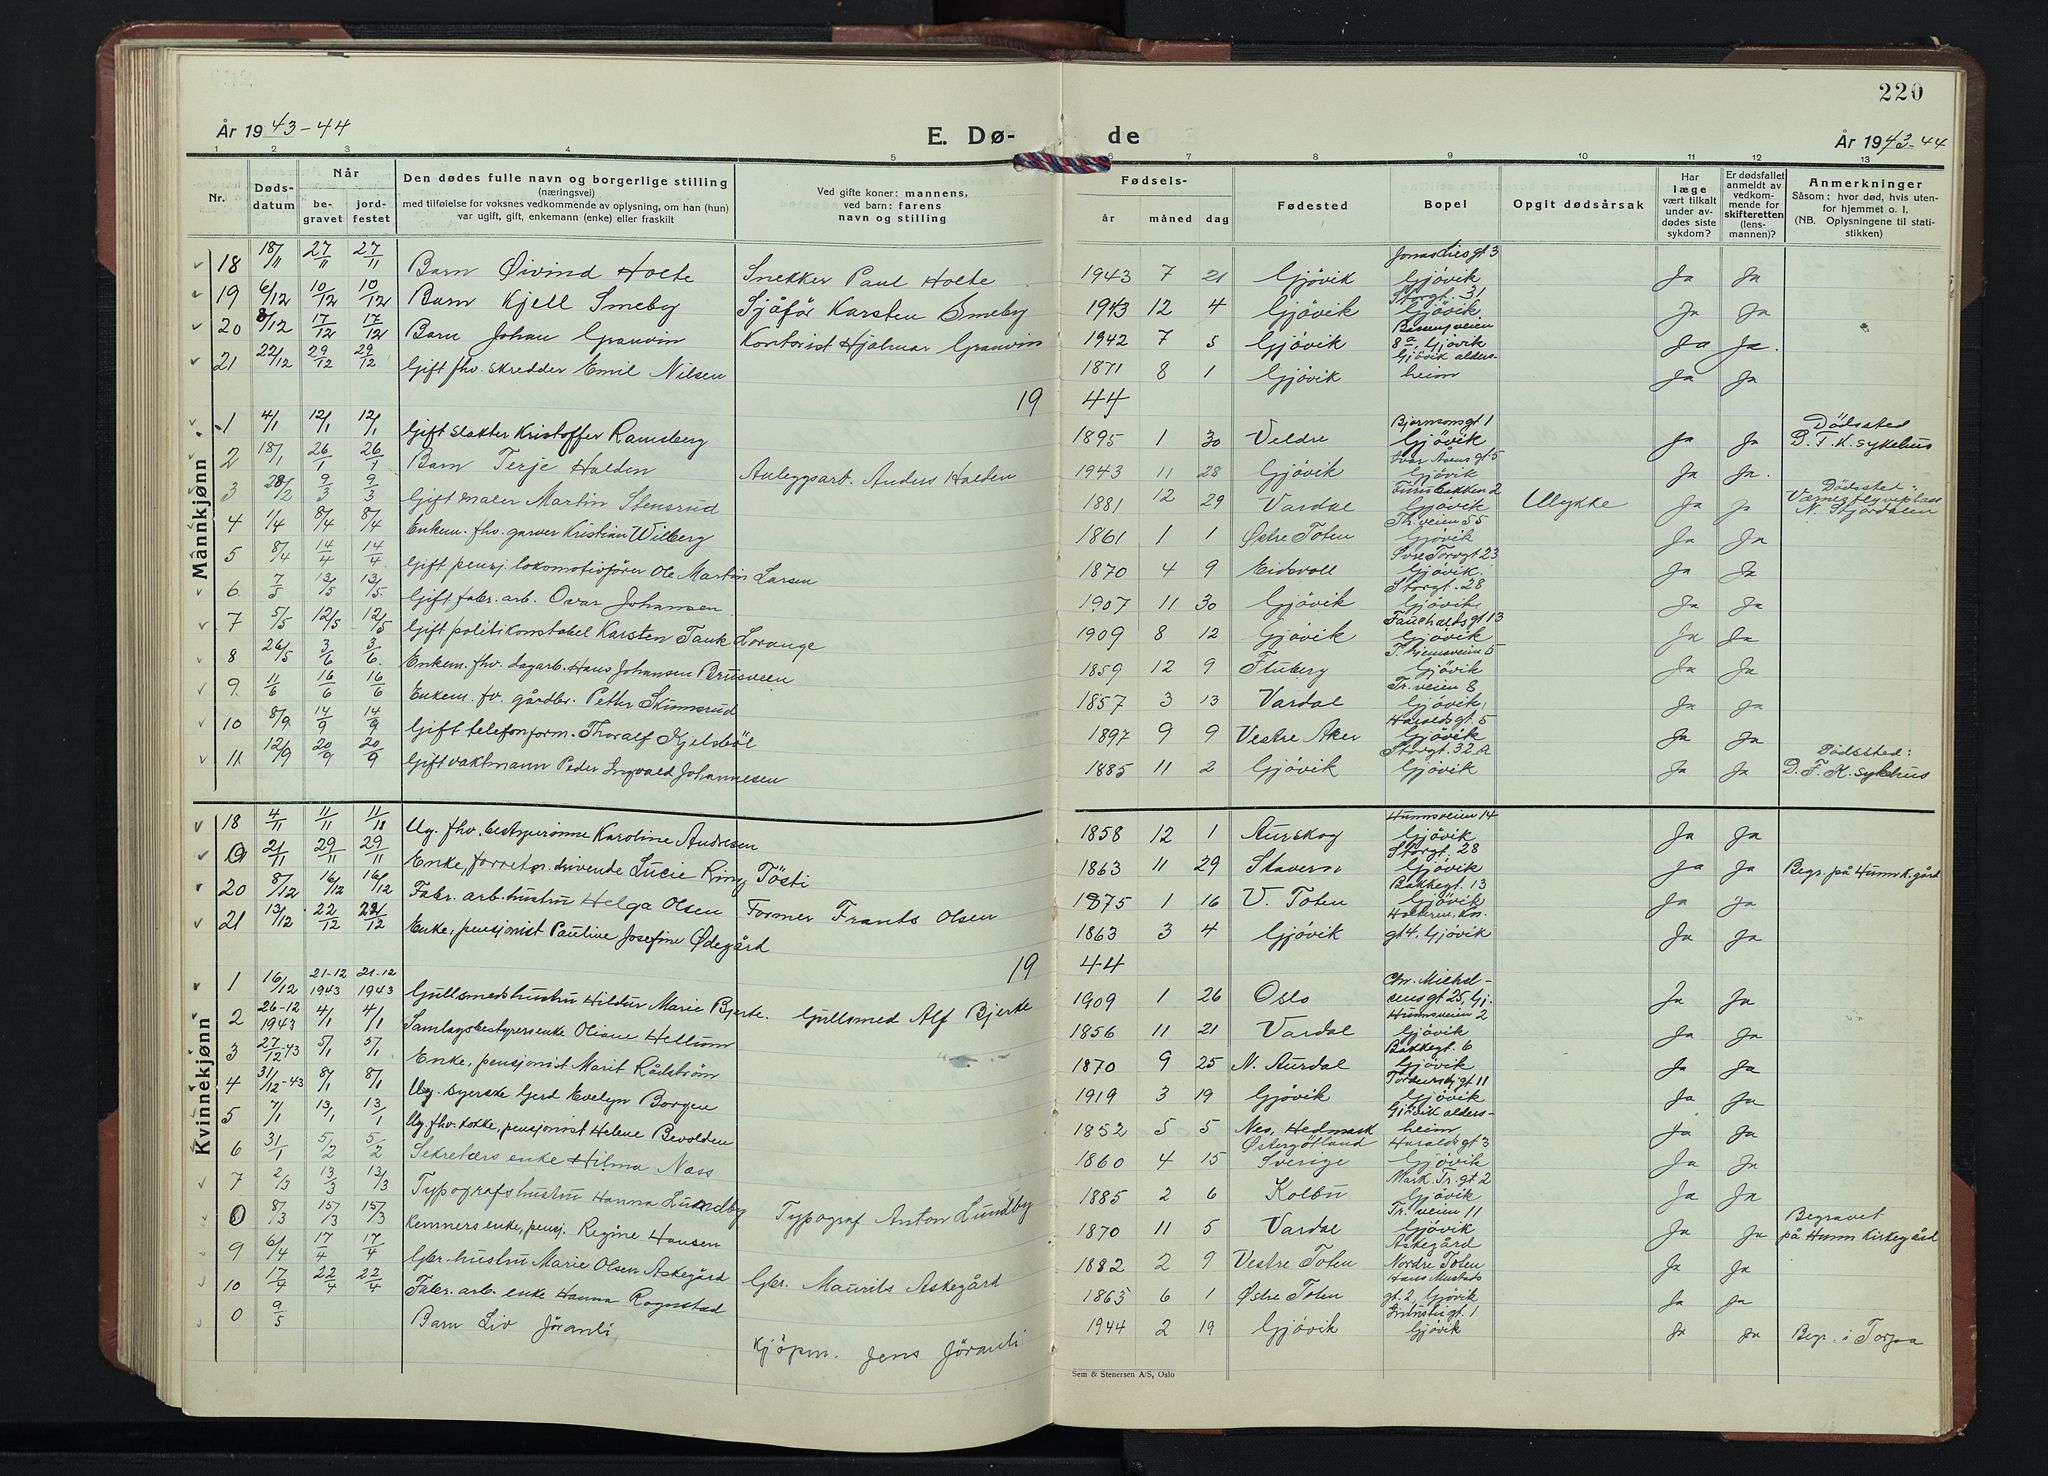 220
År 1943-44
E. Dø-
de
År 1943-44
1 2 3 4 5 6 7 8 9 10 11 12 13
Nr.
Døds-
datum
Når
be-
gravet
jord-
festet
Den dødes fulle navn og borgerlige stilling
(næringsvei)
med tilføielse for voksnes vedkommende av oplysning, om han (hun)
var ugift, gift, enkemann (enke) eller fraskilt
Ved gifte koner: mannens,
ved barn: farens
navn og stilling
Fødsels-
år måned dag
Fødested
Bopel
Opgit dødsårsak
Har
læge
vært tilkalt
under av-
dødes siste
sykdom?
Er dødsfallet
anmeldt av
vedkom-
mende for
skifteretten
(lens-
mannen)?
Anmerkninger
Såsom: hvor død, hvis uten-
for hjemmet o. l.
(NB. Oplysningene til stati-
stikken)
Mannkjønn
18 18/11 27/11 27/11 Barn Øivind Holte Snekker Paul Holte 1943 7 21 Gjövik Jonas Liesgt 3 Gjövik Ja Ja
19 6/12 10/12 10/12 Barn Kjell Smeby Sjåför Karsten Smeby 1943 12 4 Gjövik Storgt. 31 Gjövik. Ja Ja
20 8/12 17/12 17/12 Barn Johan Granvin Kontorist Hjalmar Granvin 1942 7 5 Gjövik Bassengveien 8a, Gjövik Ja Ja.
21 22/12 29/12 29/12 Gift fhv. skredder Emil Nilsen 1871 8 1 Gjövik Gjövik alders-heim Ja Ja
19 44
1 4/1 12/1 12/1 Gift slakter Kristoffer Ramsberg 1895 1 30 Veldre Bjørnsonsgt 1 Gjövik Ja Ja Dödssted D. F. K. sykehus
2 18/1 26/1 26/1 Barn Terje Halden Anleggsarb. Anders Halden 1943 11 28 Gjövik Ivar Aasens gt. 5 Gjövik Ja Ja.
3 28/2 9/3 9/3 Gift maler Martin Stensrud 1881 12 29 Vardal Furubakken 2 Gjövik Ulykke Ja Ja Dödssted: Værnes flyveplass N. Stjørdalen
4 1/4 8/4 8/4 Enkem. fhv. garver Kristian Wilberg 1861 1 1 Østre Toten Th. veien 55 Gjövik Ja Ja
5 8/4 14/4 14/4 Gift pensj. lokomotivförer Ole Martin Larsen 1870 4 9 Eidsvoll Øvre Torvgt 23 Gjövik. Ja Ja
6. 7/5 13/5 13/5. Gift fabr. arb. Ovar Johansen 1907 11 30 Gjövik Storgt. 28 Gjövik Ja Ja
7 5/5 12/5 12/5 Gift politikonstabel Karsten Tank Lorange 1909 8 12 Gjövik Fauchaldsgt 13 Gjövik Ja Ja
8 26/5 3/6 3/6. Enkem. fhv. dagarb. Hans Johansen Brusveen 1859 12 9 Fluberg Gjövik Ja Ja
9. 11/6 16/6 16/6 Enkem. fv. gårdbr. Petter Skinnerud 1857 3 13 Vardal Tr. veien 8 Gjövik, Ja Ja
10 8/9. 14/9 14/9 Gift telefonform. Thoralf Kjelsböl 1897 9 9 Vestre Aker Haraldsgt. 5 Gjövik Ja Ja
11 12/9 20/9 20/9 Gift vaktmann Peder Ingvald Johannesen 1885 11 2 Gjövik Storgt. 32 a Gjövik Ja Ja Dödssted: D. F. K. sykehus
Kvinnekjønn
18 4/11 11/11 11/11 Ug. fhv. bestyrerinne Karoline Andresen 1858 12 1 Aurskog Hunnsveien 14 Gjövik Ja Ja
0 21/11 29/11 29/11 Enke, forretn. drivende Lucie Ring Tösti 1863 11 29 Stavern Storgt. 28 Gjövik Ja Ja Begr. på Hunn k. gård
20 8/12 16/12 16/12 Fabr. arb. hustru Helga Olsen Former Frants Olsen 1875 1 16 V. Toten Bakkegt. 13 Gjövik Ja Ja
21 13/12 22/12 22/12 Enke, pensjonist Pauline Josefine Ødegård 1863 3 4 Gjövik gt 4, Gjövik Ja Ja
19 44
1 16/12 21-12 1943 21-12 1943 Gullsmedhustru Hildur Marie Bjerke. Gullsmed Alf Bjerke 1909 1 26 Oslo Chr. Michel-sensgt 25, Gj. Ja Ja
2 26-12 1943 4/1 4/1 Samlagsbestyrers enke Oliane Hellum 1856 11 21 Vardal Hunnsveien 2 Gjövik Ja Ja
3 27/12-43 5/1 5/1 Enke, pensjonist Marit Rådström 1870 9 25 N. Aurdal Bakkegt. 6 Gjövik Ja Ja
4 31/12-43 8/1 8/1 Ug. syerske Gerd Evelyn Borgen 1919 3 19 Gjövik Tordenskj. gt 11 Gjövik Ja Ja
5 7/1 13/1 13/1 Ug. fhv. kokke, pensjonist Helene Bevolden 1852 5 5 Nes, Hedmark Gjövik alders-heim Ja Ja
6 31/1 5/2 5/2 Sekretærs enke Hilma Næss 1860 4 15 Østergötland Sverige Haraldsgt 3 Gjövik Ja Ja
7 2/3 13/3 13/3 Typografhustru Hanna Lundby Typograf Anton Lundby 1885 2 6 Kolbu Mark. Tr. gt 2 Gjövik Ja Ja
0 8/3 15/3 15/3 Kemners enke, pensj. Regine Hansen 1870 11 5 Vardal Tr. veien 11 Gjövik Ja Ja Begravet på Hunn kirkegård
9 6/4 17/4 17/4 Gbr. hustru Marie Olsen Askegård Gbr. Maurits Askegård 1882 2 9 Vestre Toten Askegård Nordre Toten Ja Ja
10 17/4 22/4 22/4 Fabr. arb. enke Hanna Rognstad 1865 6 1 Østre Toten Hans Mustads gt. 2, Gjövik Ja Ja
0 9/5 Barn Liv Jöranli Kjöpm. Jens Jöranli 1944 2 19 Gjövik Industrigt. 1 Gjövik Ja Ja Begr. i Torpa
Sem & Stenersen A/S, Oslo